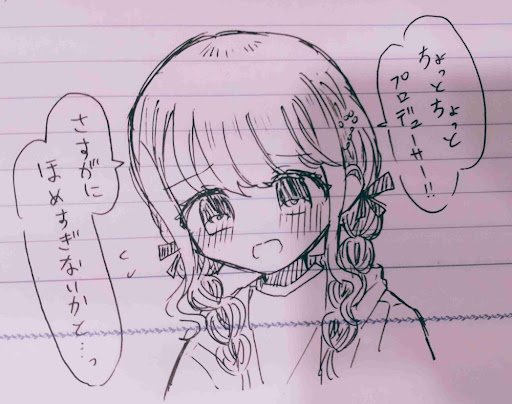 ちょっとちょっと
プロデューサー!!
さすがに
ほめすぎないかと…っ